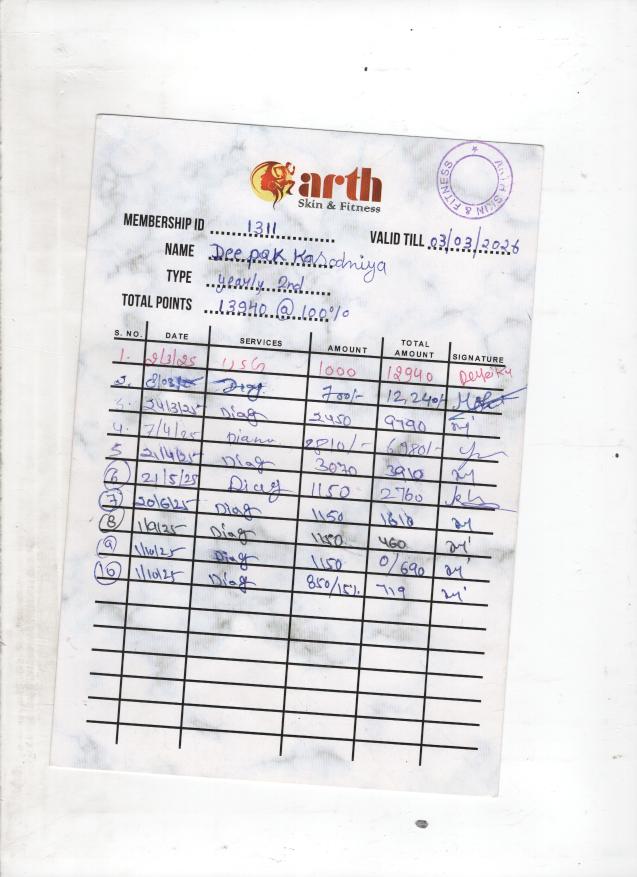 arth
Skin & Fitness
Arth SKIN & FITNESS
MEMBERSHIP ID 1311
VALID TILL 03/03/2026
NAME Deepak Kasodniya
TYPE yearly 2nd
TOTAL POINTS 13940 @ 100%
S. NO. DATE SERVICES AMOUNT TOTAL AMOUNT SIGNATURE
1. 2/3/25 1000 12940
2. Diag 700/- 12,240/-
24/3/25 Diag 2450 9790
4. 7/4/25 2810/- 6980/-
5 21/4/25 Diag 3070 3910
6 21/5/25 Diag 1150 2760
7 20/6/25 Diag 1150 1610
8 1/9/25 Diag 1150 460
9 1/10/25 Diag 1150 0/690
10 1/10/25 Diag 850/15% 719